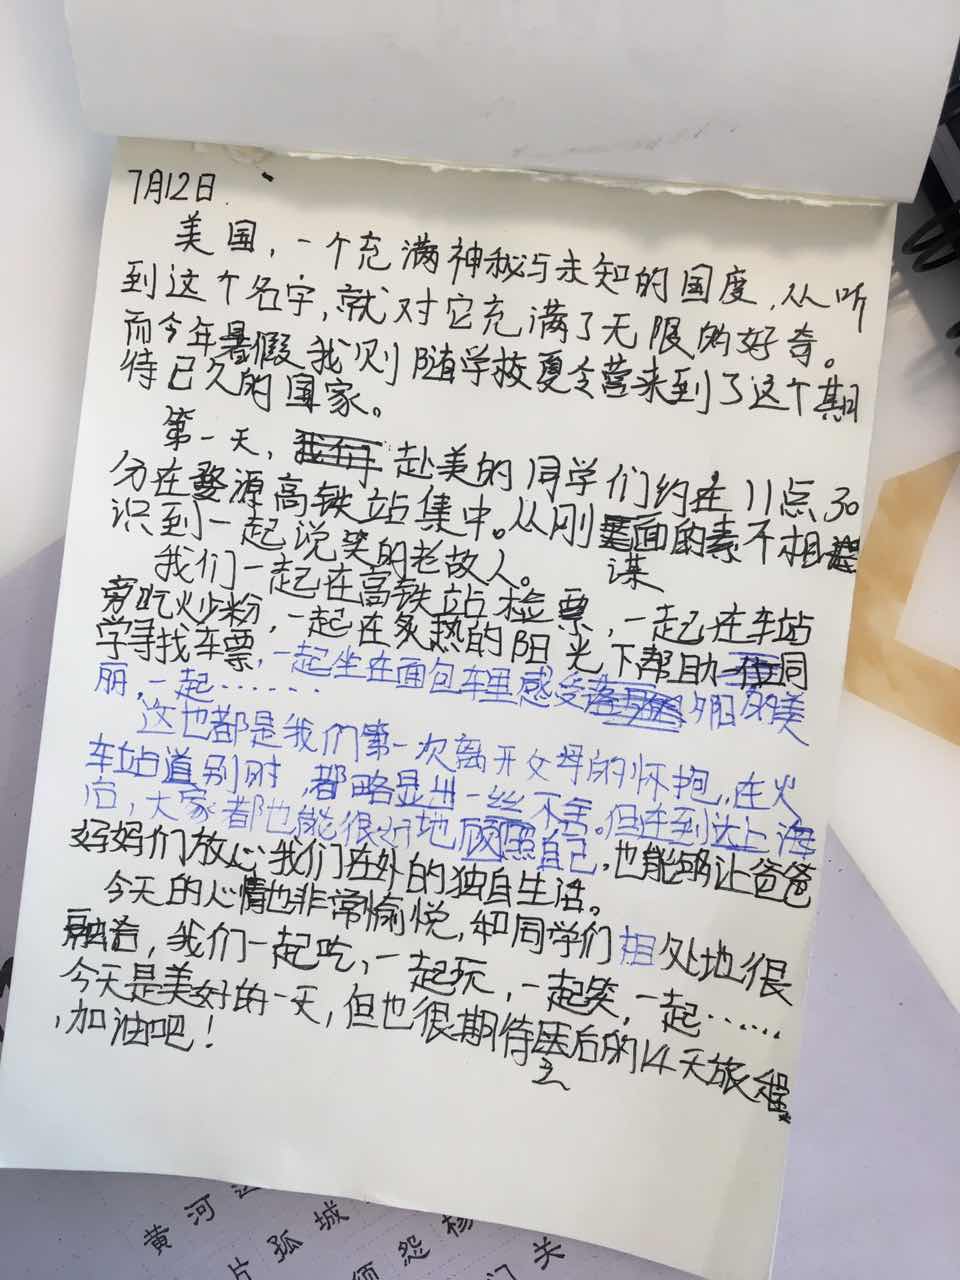 7月12日.
美国，一个充满神秘与未知的国度，从听
到这个名字，就对它充满了无限的好奇。
而今年暑假，我则随学校夏令营来到了这个期
待已久的国家。
第一天，赴美的同学们约在11点30
分在婺源高铁站集中。从刚谋面的素不相识
识到一起说笑的老故人。
我们一起在高铁站检票，一起在车站
旁吃炒粉，一起在炙热的阳光下帮助同
学寻找车票，一起坐在面包车里感受夕阳的美
丽，一起……
这也都是我们第一次离开父母的怀抱，在火
车站道别时，都略显出一丝不舍。但在到达上海
后，大家都也能很好地照顾自己，也能够让爸爸
妈妈们放心我们在外的独自生活。
今天的心情也非常愉悦，和同学们相处地很
融洽，我们一起吃，一起玩，一起笑，一起……
今天是美好的一天，但也很期待之后的14天旅程
，加油吧！
黄河远
片孤城
须怨杨
门关